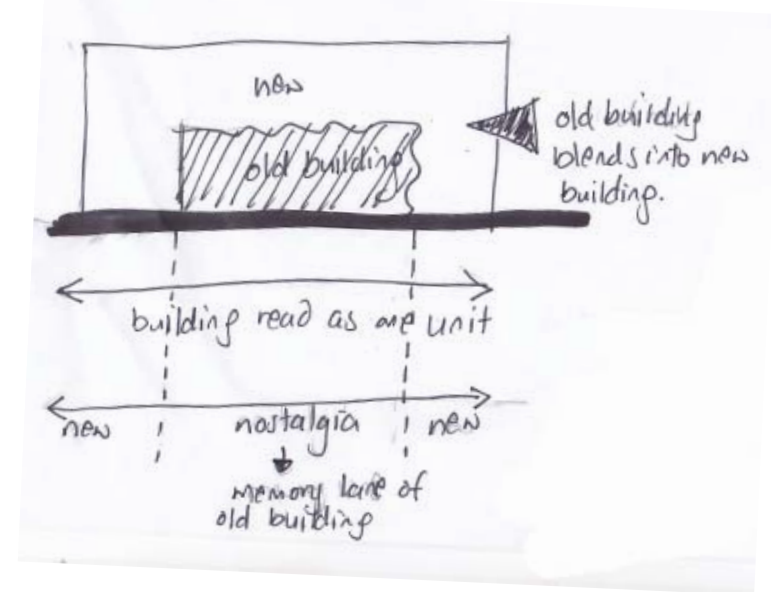 new
old building
old building
blends into new
building.
building read as one unit
new nostalgia new
memory lane of
old building